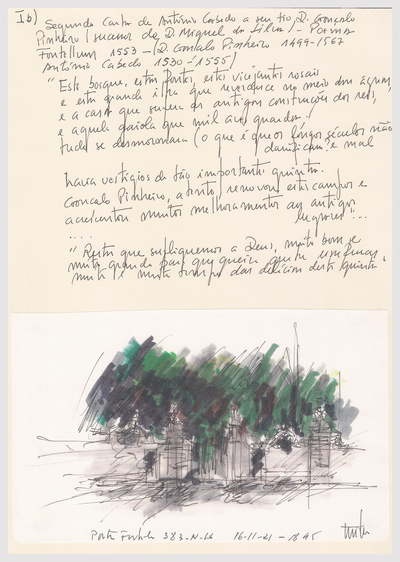 I b) Segunda carta de António Cabedo a seu tio D. Gonçalo
Pinheiro (sucessor de D. Miguel da Silva) - Poema
Fontellum 1553 - (D. Gonçalo Pinheiro 1499-1567
António Cabedo 1530-1555)
"Este bosque, estas fontes, estes vicejantes rosais
e esta grande ilha que reverdece no meio das águas,
e a casa que supera as antigas construções dos reis,
e aquela gaiola que mil aves guarda!
tudo se desmoronara (o que é que os longos séculos não
danificam?) e mal
havia vestígios de tão importante quinta.
Gonçalo Pinheiro, atento, renovou estes campos e
acrescentou muitos melhoramentos aos antigos
"...
....
"Resta que supliquemos a Deus, muito bom e
muito grande, para que queira que
muito e muito tempo das delícias desta quinta.
16-11-21 - 18 45